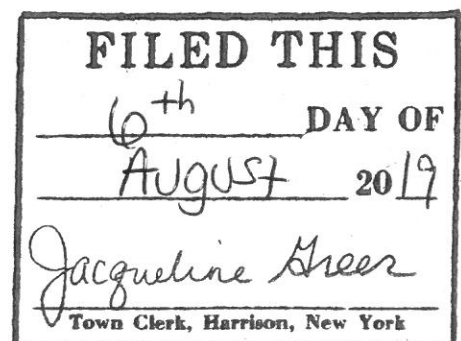 FILED THIS
6th DAY OF
August 2019
Jacqueline Greer
Town Clerk, Harrison, New York